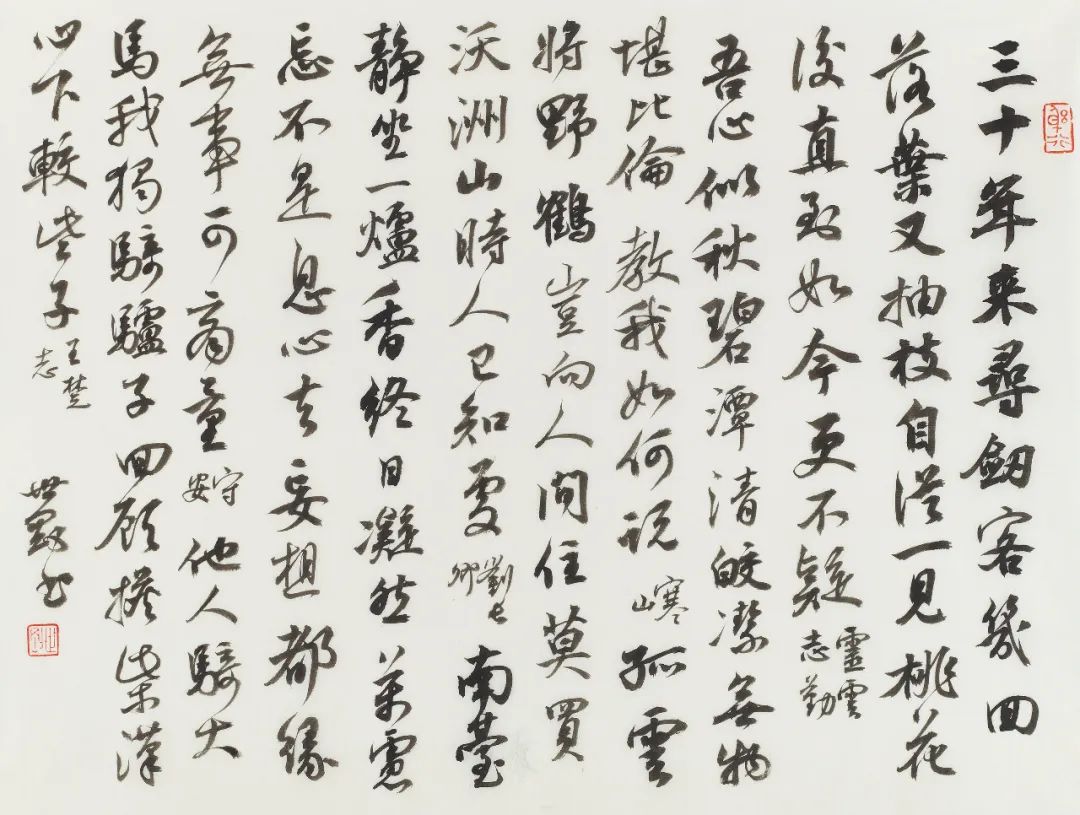 三十年来尋劒客幾回
落葉又抽枝自從一見桃花
後直到如今更不疑靈雲志勤
吾心似秋碧潭清皎潔無物
堪比倫教我如何説寒山孤雲
将野鶴豈向人間住莫買
沃洲山時人已知處劉長卿南臺
靜坐一爐香終日凝然萬慮
忘不是息心去妄想都緣
無事可商量守安他人騎大
馬我獨騎驢子回顧擔柴漢
心下較些子王梵志世书